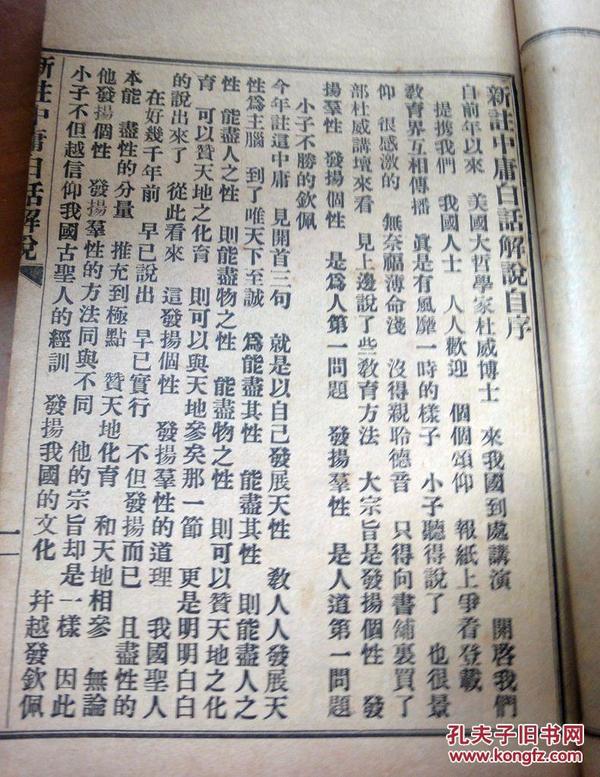 新註中庸白話解說自序
自前年以來 美國大哲學家杜威博士 來我國到處講演 開啓我們
提携我們 我國人士 人人歡迎 個個頌仰 報紙上爭者登載
教育界互相傳播 眞是有風靡一時的樣子 小子聽得說了 也很景
仰 很感激的 無奈福薄命淺 沒得親聆德音 只得向書舖裏買了
部杜威講壇來看 見上邊說了些教育方法 大宗旨是發揚個性 發
揚羣性 發揚個性 是爲人第一問題 發揚羣性 是人道第一問題
小子不勝的欽佩
今年註這中庸 見開首三句 就是以自己發展天性 敎人人發展天
性爲主腦 到了唯天下至誠 爲能盡其性 能盡其性 則能盡人之
性 能盡人之性 則能盡物之性 能盡物之性 則可以贊天地之化
育 可以贊天地之化育 則可以與天地參矣那一節 更是明明白白
的說出來了 從此看來 這發揚個性 發揚羣性的道理 我國聖人
在好幾千年前 早已說出 早已實行 不但發揚而已 且盡性的
本能 盡性的分量 推充到極點 贊天地化育 和天地相參 無論
他發揚個性 發揚羣性的方法同與不同 他的宗旨却是一樣 因此
小子不但越信仰我國古聖人的經訓 發揚我國的文化 幷越發欽佩
新註中庸白話解說
一
孔夫子旧书网
www.kongfz.com